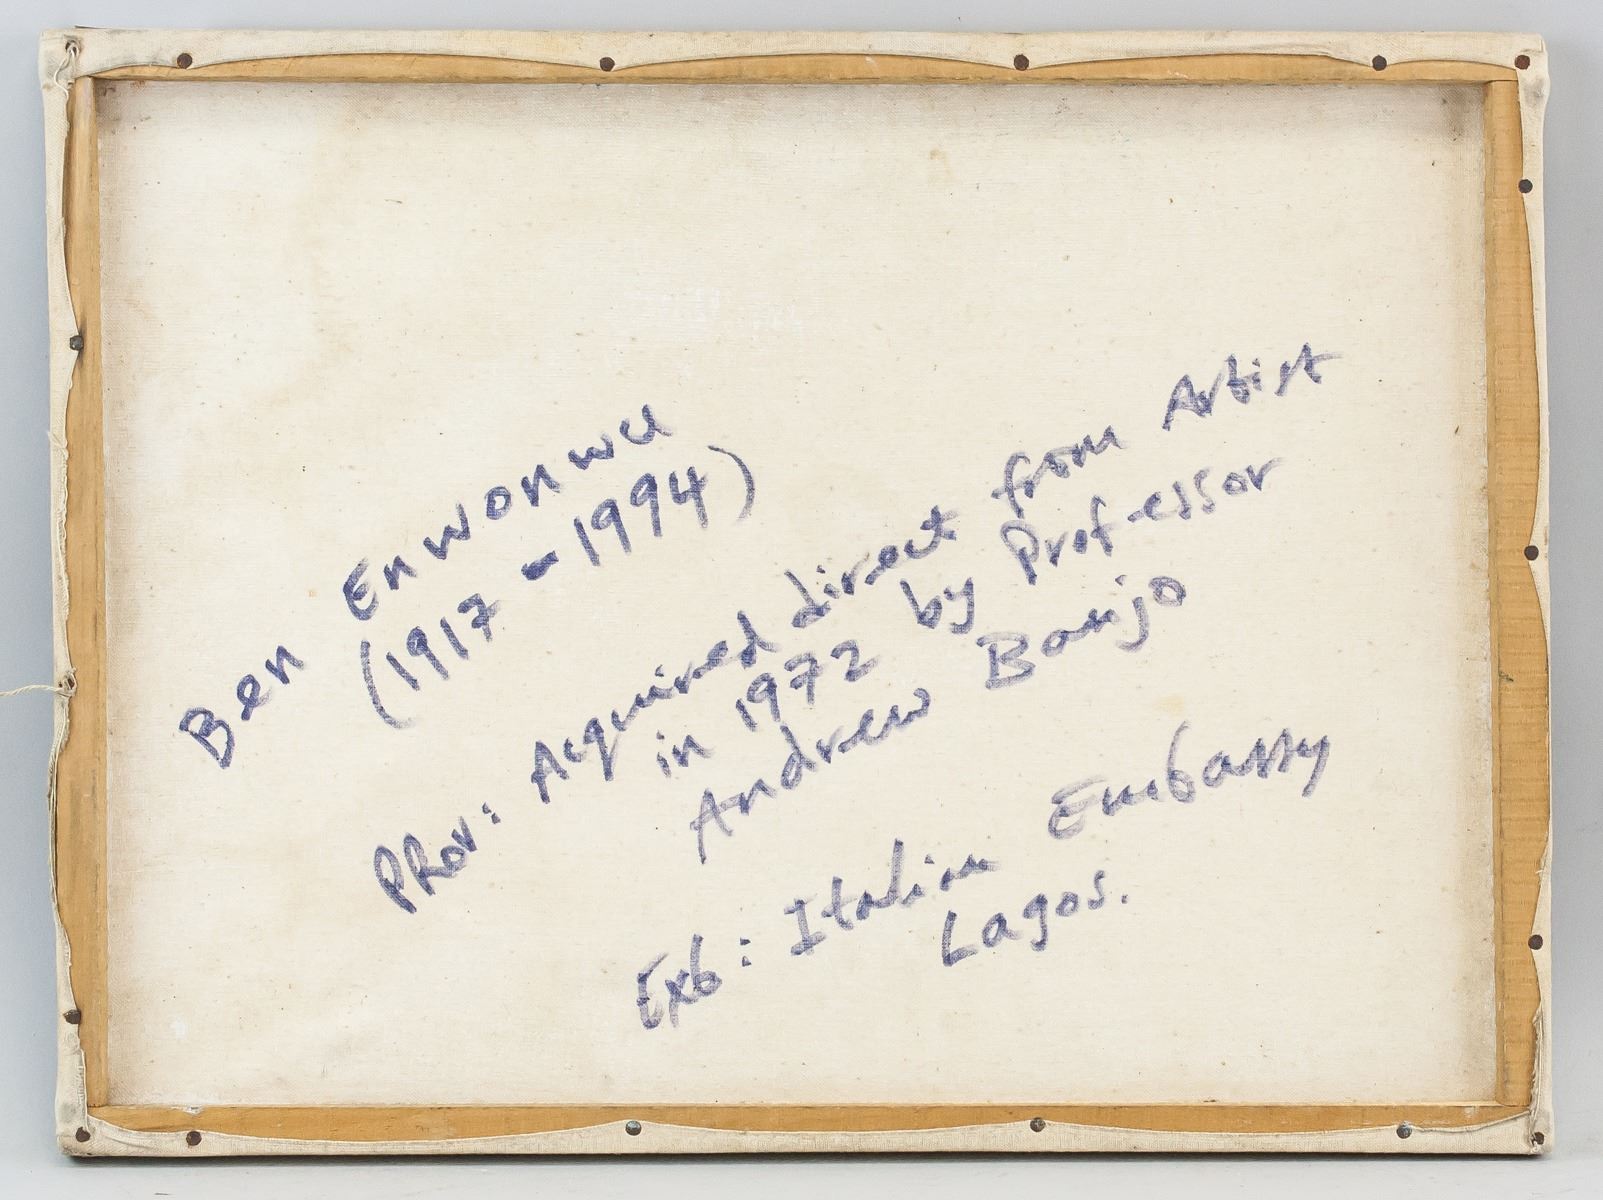 Ben Enwonwu
(1917 - 1994)
PRov: Acquired direct from Artist
in 1972 by Professor
Andrew Banjo
Exb: Italian Embassy
Lagos.